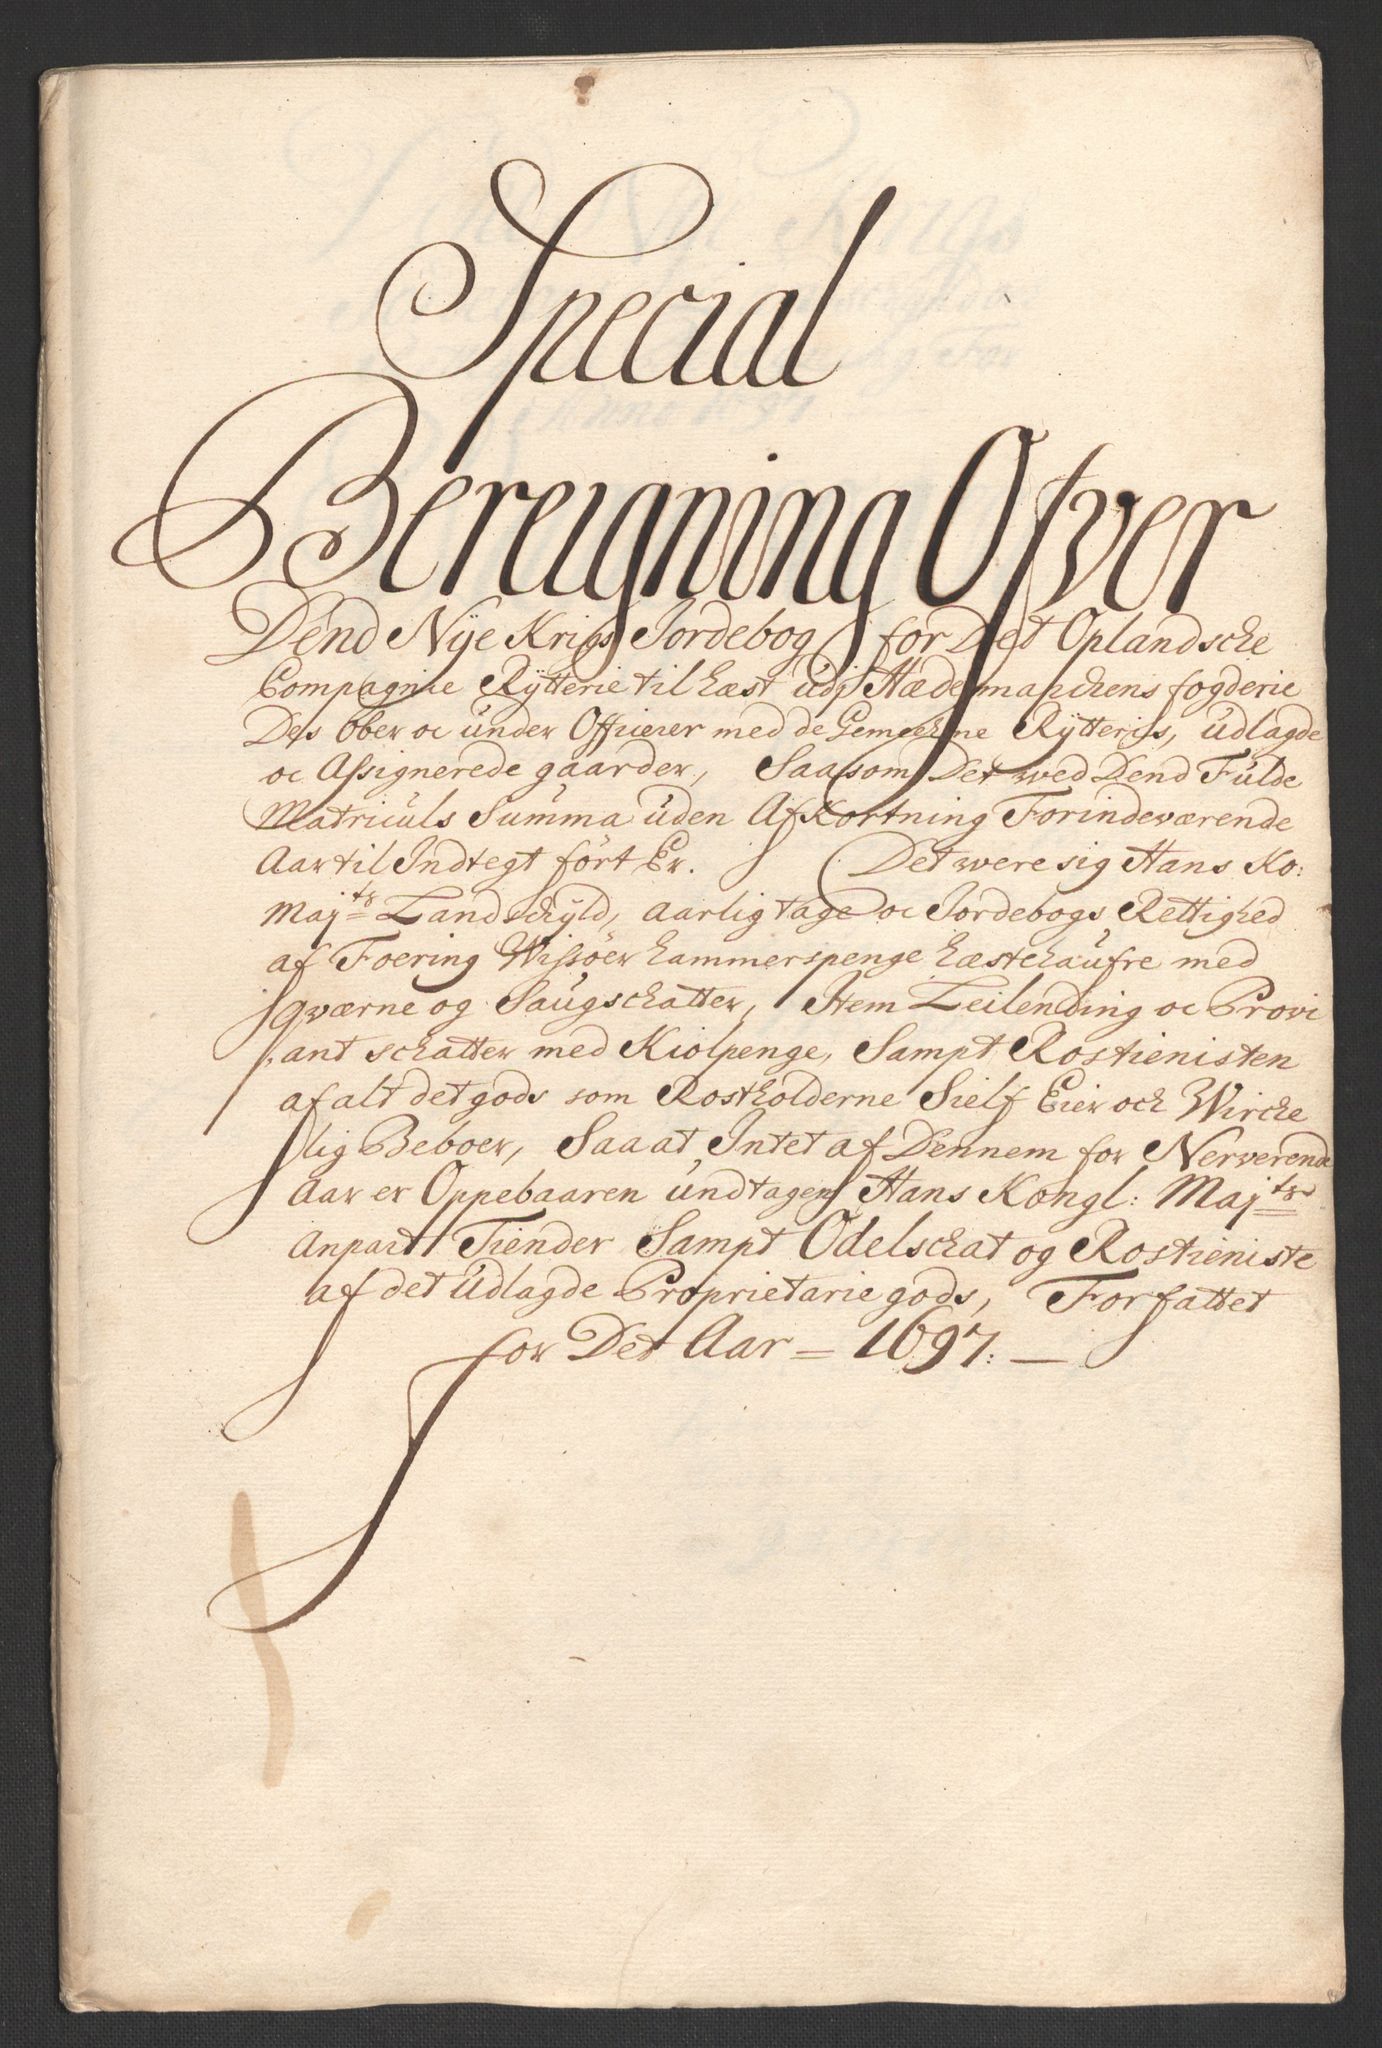 Special
Bereigning Ofver
Dend Nÿe Krigs Jordebog for Det Oplandsche
Compagnie Rÿtterie til hest udj Hædemarchens fogderie
Des Ober oc under Officier med de Gemeehne Rÿtteris, udlagde
oc Assignerede gaarder, Saasom Det wed Dend Fulde
Matriculs Summa uden AfKortning Forindeværende
Aar til Indtegt fört Er. Det were sig Hans Ko:
Maj:ts Landschÿld, aarlig tage oc Jordebogs Rettighed
af Foering Wissöer hammerspenge hæstehaufre med
qværne og Saugschatter, Item Leilending oc Provi
ant schatter med Kiolpenge, Sampt Rostienisten
af alt det gods som Rostholderne Sielf Eier och Wirche
lig Beboer, Saa at Intet af Dennem for Nerverende
Aar er Oppebaaren undtagen Hans Kongl: Maj:ts
Anpart Tiender Sampt Odelschat og Rostieniste
af det udlagde Proprietarie gods, Forfattet
for Det Aar = 1697: —